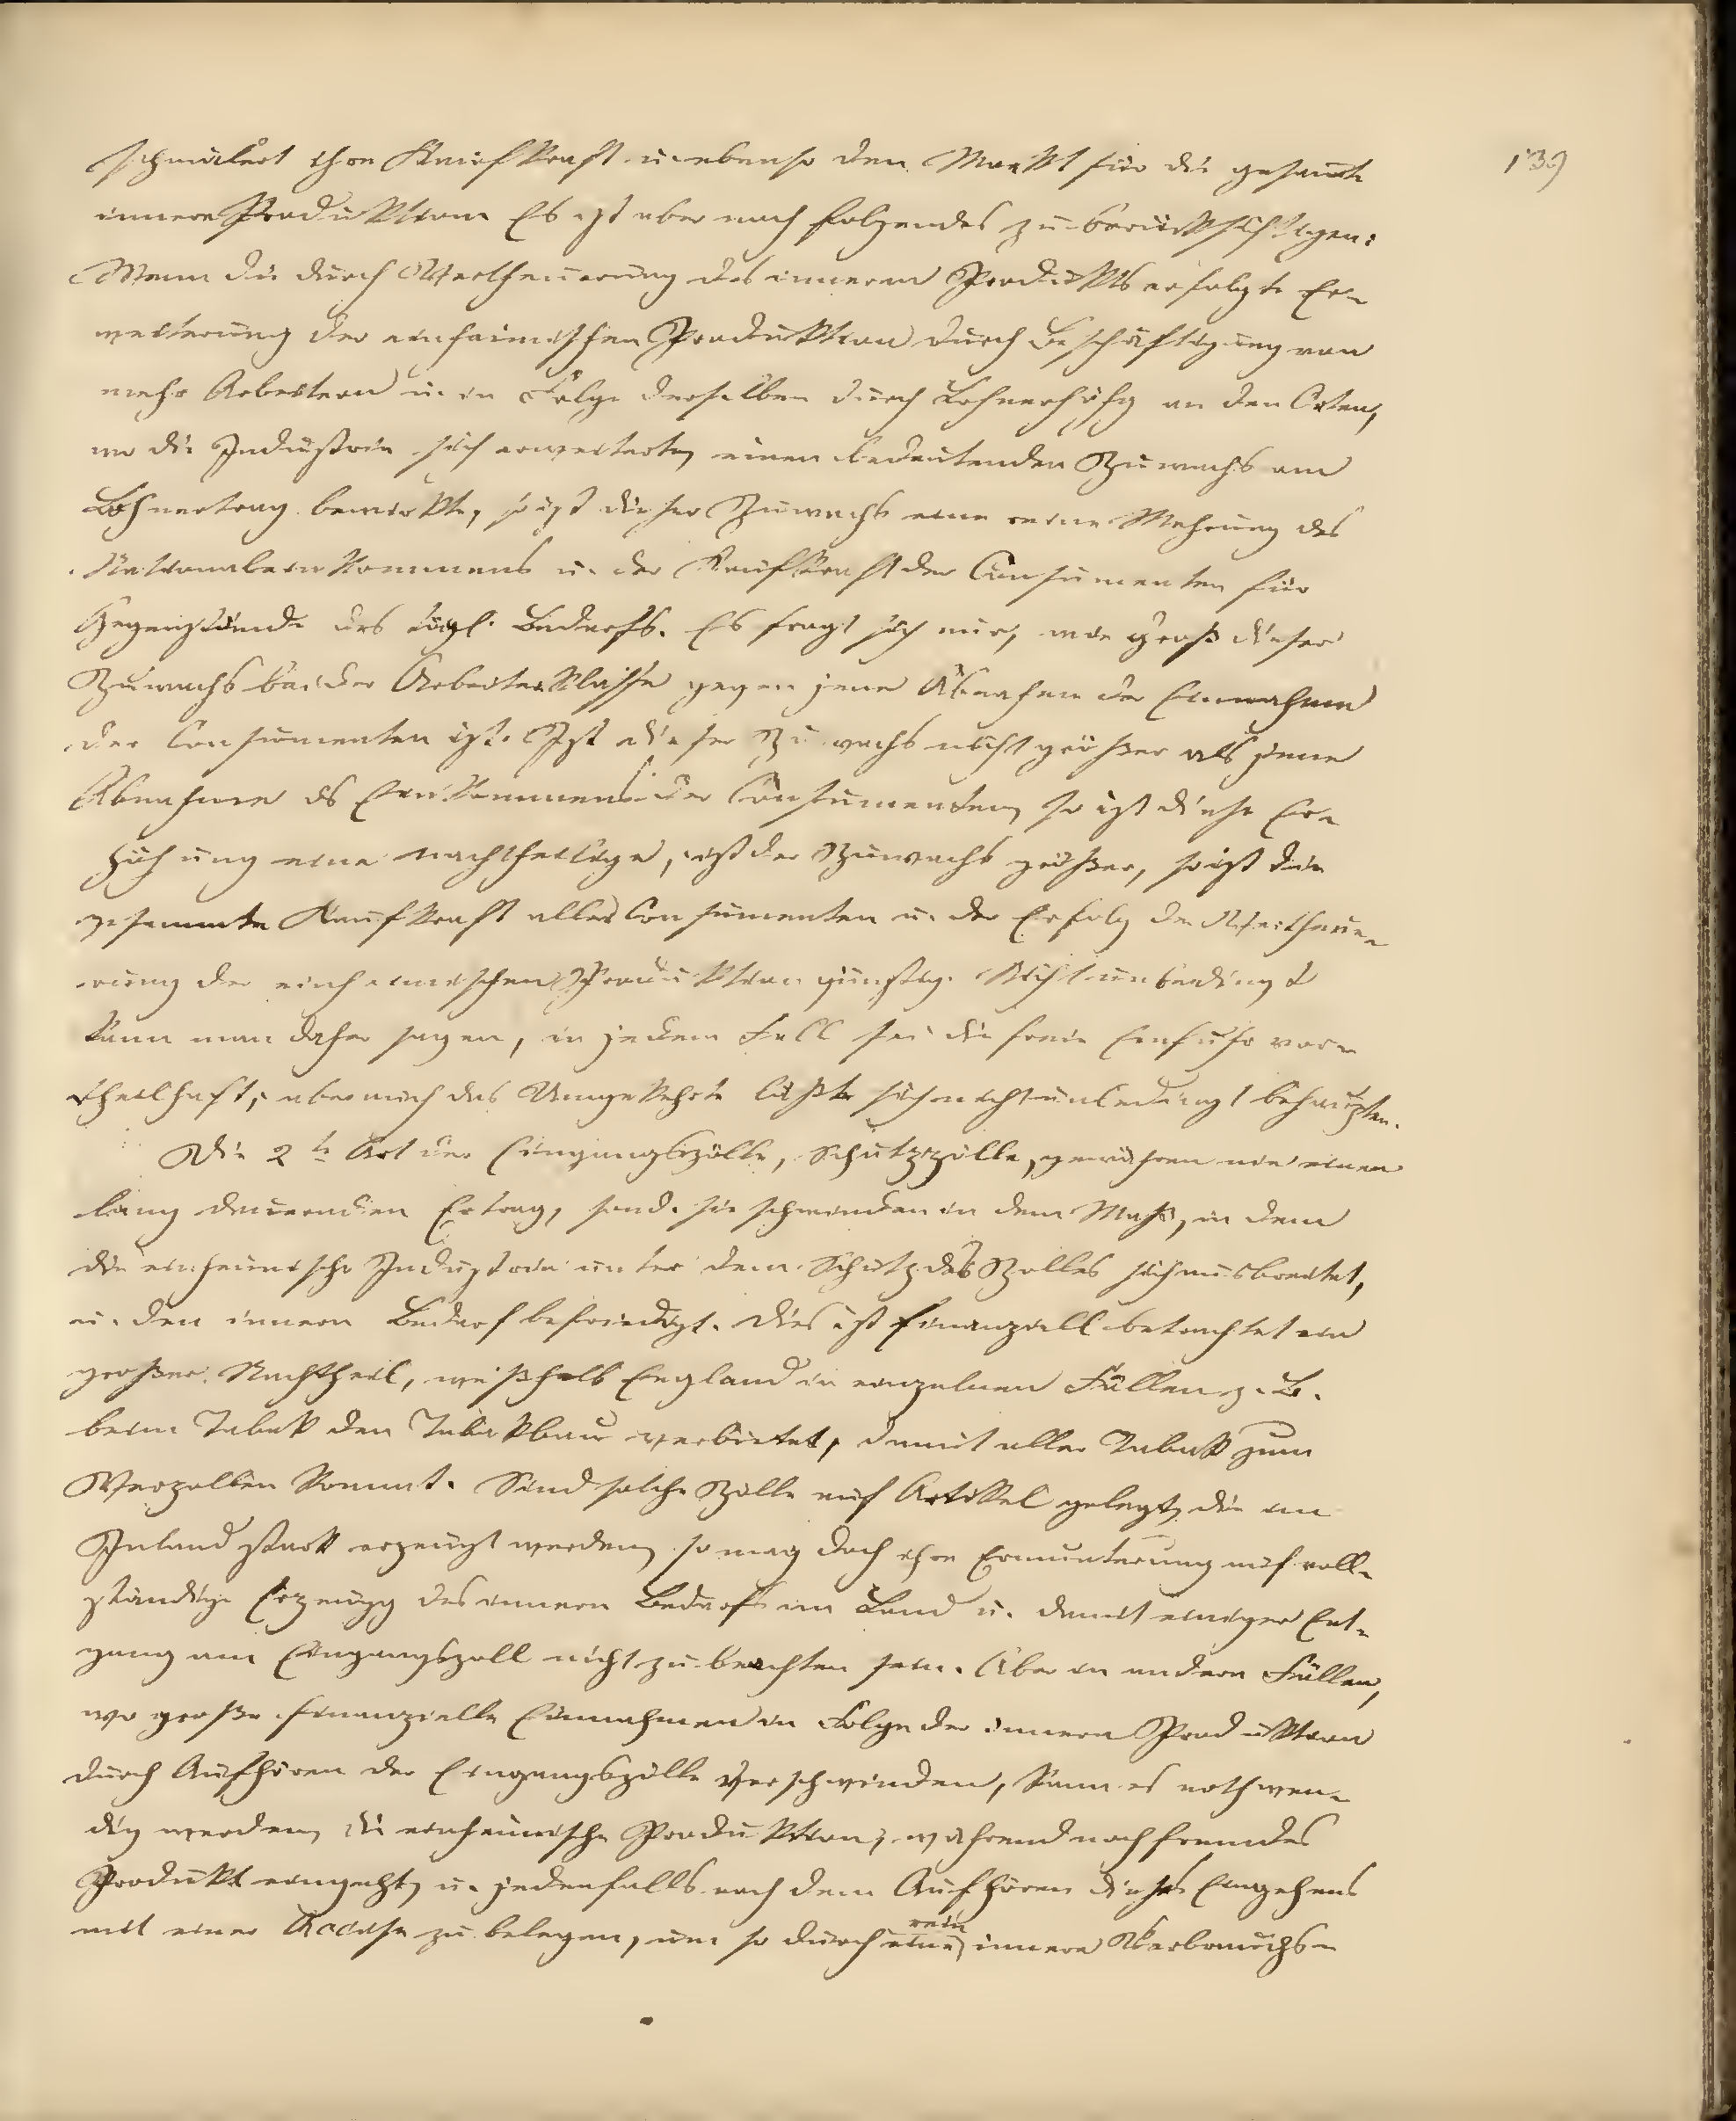 139
schmälert ihre Kaufkraft u. ebenso den Markt für die gesamte
innere Produktion. Es ist aber noch folgendes zu berücksichtigen:
Wenn die durch Vertheuerung des inneren Produkts erfolgte Er-
weiterung der einheimischen Produktion durch Beschäftigung von
mehr Arbeitern u. in Folge derselben durch Lohnerhöhg an den Orten,
wo die Industrie sich erweiterte, einen bedeutenden Zuwachs am
Lohnertrag bewirkte, so ist dieser Zuwachs eine reine Mehrung des
Nationaleinkommens u. der Kaufkraft der Consumenten für
Gegenstände des tägl. Bedarfs. Es fragt sich nur, wie groß dieser
Zuwachs bei der Arbeiterklasse gegen jene Abnahme der Einnahme
der Consumenten ist. Ist dieser Zuwachs nicht größer als jene
Abnahme des Einkommens der Consumenten, so ist diese Er-
höhung eine nachtheilige, ist der Zuwachs größer, so ist die
gesammte Kaufkraft aller Consumenten u. der Erfolg der Vertheue-
rung der einheimischen Produktion günstig. Nicht unbedingt
kann man daher sagen, in jedem Fall sei die freie Einfuhr vor-
theilhaft, aber auch das Umgekehrte läßt sich nicht unbedingt behaupten.
Die 2te Art der Eingangszölle, Schutzzölle, gewähren nie einen
lang dauernden Ertrag, sond. sie schwinden in dem Maß, in dem
die einheimische Industrie unter dem Schutz des Zolles sich ausbreitet,
u. den innern Bedarf befriedigt. Dies ist finanziell betrachtet ein
großer Nachtheil, weßhalb England in einzelnen Fällen z. B.
beim Tabak den Tabakbau verbietet, damit aller Tabak zum
Verzollen kommt. Sind solche Zölle auf Artikel gelegt, die im
Inland stark erzeugt werden, so mag doch ihre Ermunterung auf voll-
ständige Erzeugg des innern Bedarfs im Land u. damit einiger Ent-
gang am Eingangszoll nicht zu beachten sein. Aber in andern Fällen,
wo große finanzielle Einnahmen in Folge der innern Produktion
durch Aufhören der Eingangszölle verschwinden, kann es nothwen-
dig werden, die einheimische Produktion, während noch fremdes
Produkt eingeht, u. jedenfalls nach dem Aufhören dieses Eingehens
mit einer Accise zu belegen, um so durch eine rein innere Verbrauchs-